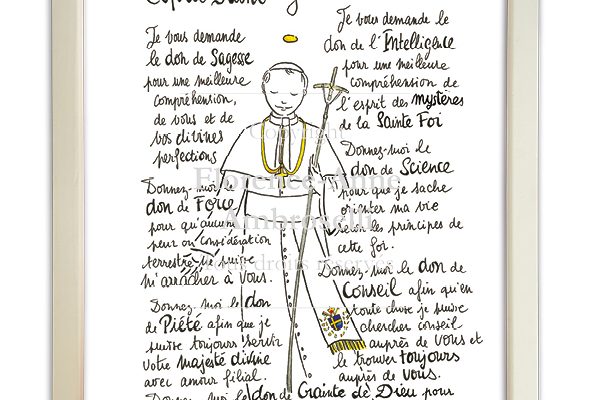 Je vous demande
le don de Sagesse
pour une meilleure
compréhension,
de vous et de
vos divines
perfections
Donnez-moi le
don de Force
pour qu'aucune
peur ou considération
terrestre ne puisse
m'arracher à Vous.
Donnez-moi le don
de Piété afin que je
puisse toujours servir
Votre majesté divine
avec amour filial.
Je vous demande le
don de l'Intelligence
pour une meilleure
compréhension de
l'esprit des mystères
de la Sainte Foi
Donnez-moi le
don de Science
pour que je sache
orienter ma vie
selon les principes de
cette foi.
Donnez-moi le don de
Conseil afin qu'en
toute chose je puisse
chercher conseil
auprès de Vous et
le trouver toujours
auprès de Vous.
Donnez-moi le don de Crainte de Dieu pour
Copyright
Florence-Anne
Ambroselli
Tous droits réservés